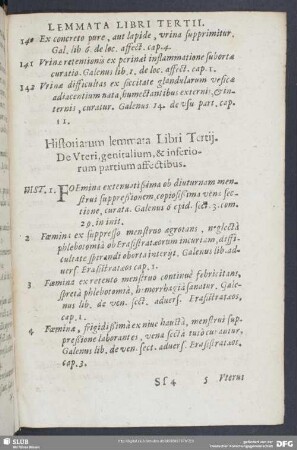 LEMMATA LIBRI TERTII.
140 Ex concreto pure, aut lapide, vrina supprimitur.
Gal. lib 6. de loc. affect. cap. 4.
141 Vrinæ retentionū ex perinæi inflammatione subortæ
curatio. Galenus lib. 1. de loc. affect. cap. 1.
142 Vrinæ difficultas ex siccitate glandularum vesicæ
adiacentium nata, humectantibus externis, & in-
ternis, curatur. Galenus 14. de vsu part. cap.
11.
Historiarum lemmata Libri Tertij.
De Vteri, genitalium, & inferio-
rum partium affectibus.
HIST. 1. FOEmina extenuatissima ob diuturnam men-
strui suppressionem, copiosissima venæ sec-
tione, curata. Galenus 6 epid. sect. 3. com.
29. in init.
2 Fœmina ex suppresso menstruo ægrotans, neglecta
phlebotomia ob Erasistratæorum incuriam, diffi-
cultate spirandi oborta interijt. Galenus lib. ad-
uers. Erasistratæos cap. 1.
3 Fœmina ex retento menstruo continuè febricitans,
spreta phlebotomia, hæmorrhagia sanatur. Gale-
nus lib. de ven. sect. aduers. Erasistratæos,
cap. 1.
4 Fœmina, frigidissima ex niue hausta, menstrui sup-
pressione laborantes, vena secta curantur,
Galenus lib. de ven. sect. aduers. Erasistratæos.
cap. 3.
Sf 4 5 Vterus
SLUB
DFG